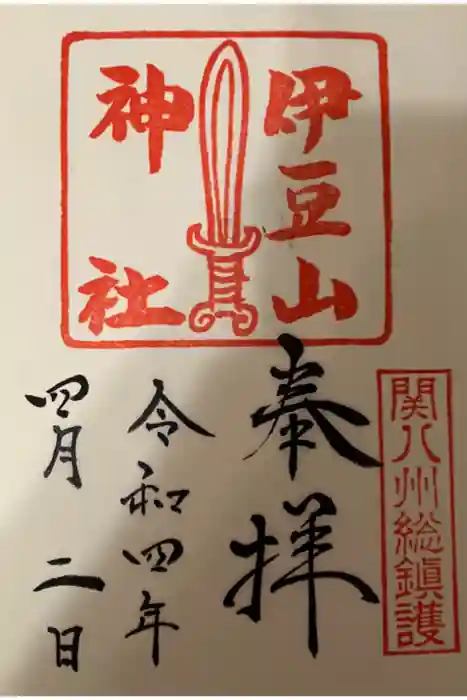 関八州総鎮護
伊豆山
神社
奉拝
令和四年
四月二日